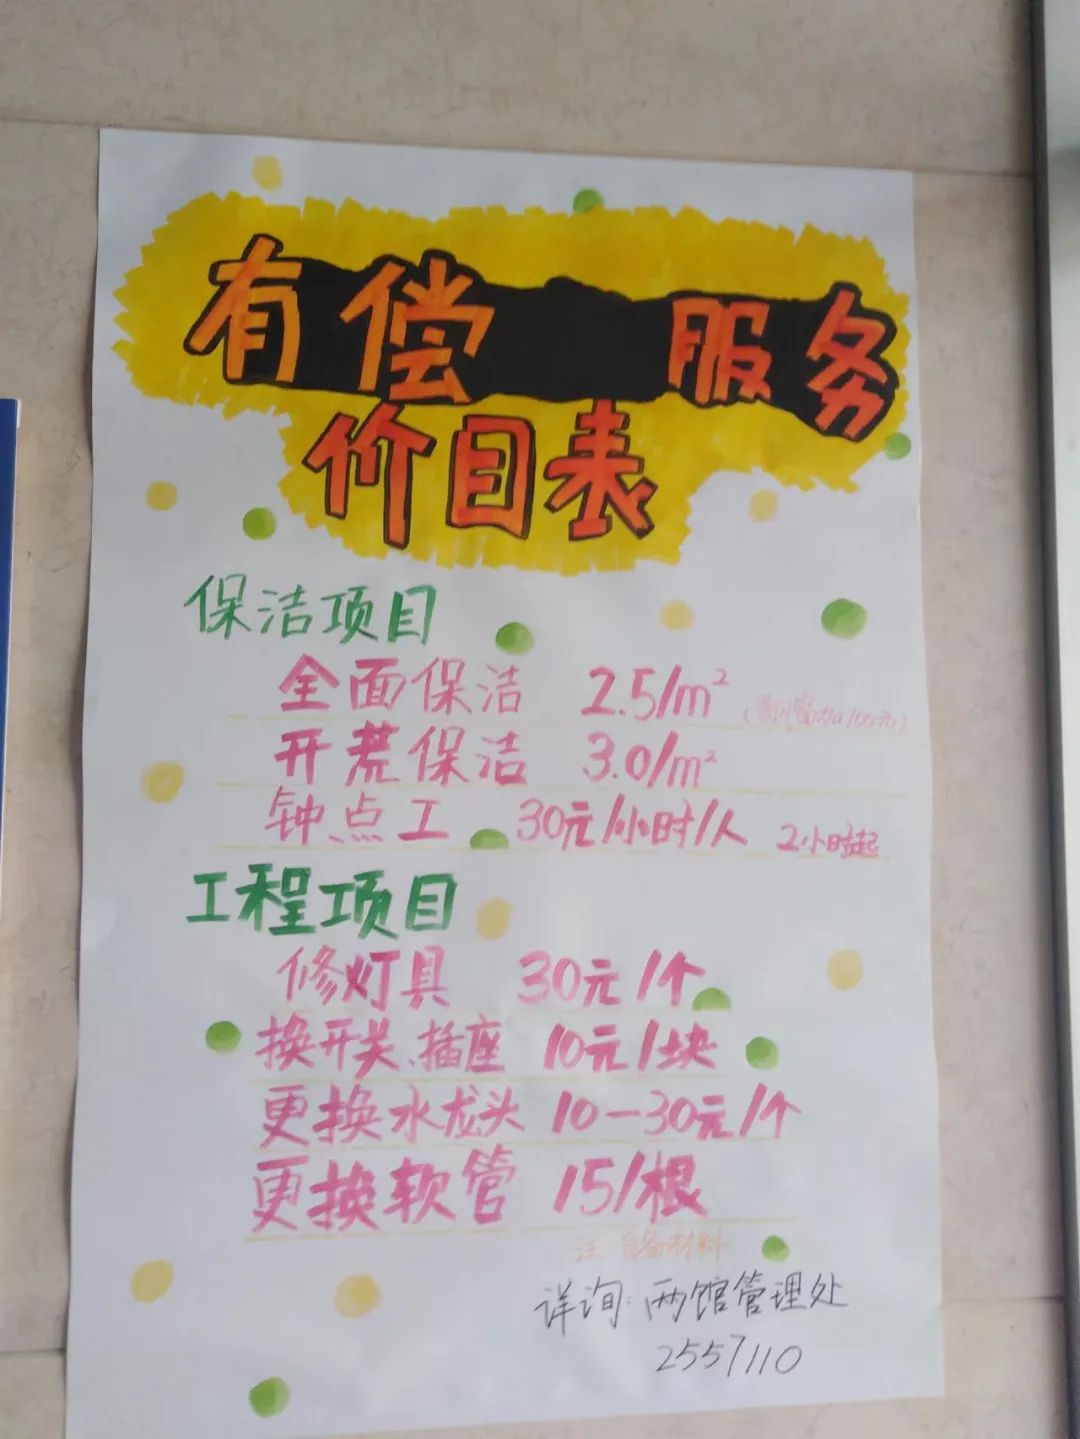 有偿 服务
价目表
保洁项目
全面保洁 2.5/m²
加100元)
开荒保洁 3.0/m²
钟点工 30元/小时/人 2小时起
工程项目
修灯具 30元/个
换开关、插座 10元/块
更换水龙头 10一30元/个
更换软管 15/根
注 自备材料
详询:两馆管理处
2557110